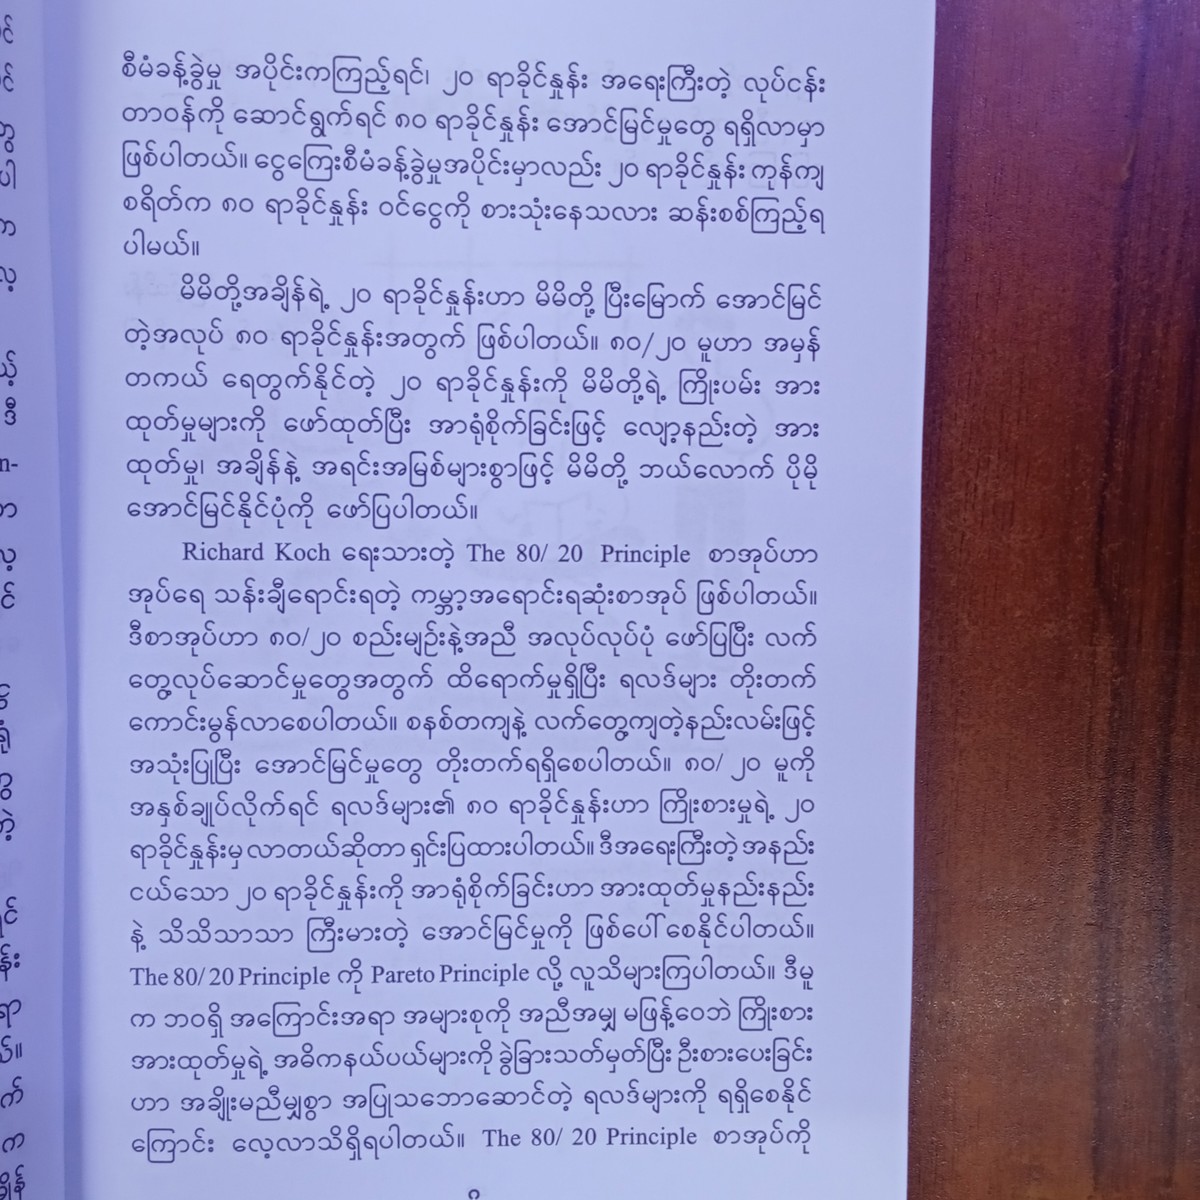 စီမံခန့်ခွဲမှု အပိုင်းကကြည့်ရင်၊ ၂၀ ရာခိုင်နှုန်း အရေးကြီးတဲ့ လုပ်ငန်း
တာဝန်ကို ဆောင်ရွက်ရင် ၈၀ ရာခိုင်နှုန်း အောင်မြင်မှုတွေ ရရှိလာမှာ
ဖြစ်ပါတယ်။ ငွေကြေးစီမံခန့်ခွဲမှုအပိုင်းမှာလည်း ၂၀ ရာခိုင်နှုန်း ကုန်ကျ
စရိတ်က ၈၀ ရာခိုင်နှုန်း ဝင်ငွေကို စားသုံးနေသလား ဆန်းစစ်ကြည့်ရ
ပါမယ်။
မိမိတို့အချိန်ရဲ့ ၂၀ ရာခိုင်နှုန်းဟာ မိမိတို့ ပြီးမြောက် အောင်မြင်
တဲ့အလုပ် ၈၀ ရာခိုင်နှုန်းအတွက် ဖြစ်ပါတယ်။ ၈၀/၂၀ မူဟာ အမှန်
တကယ် ရေတွက်နိုင်တဲ့ ၂၀ ရာခိုင်နှုန်းကို မိမိတို့ရဲ့ ကြိုးပမ်း အား
ထုတ်မှုများကို ဖော်ထုတ်ပြီး အာရုံစိုက်ခြင်းဖြင့် လျော့နည်းတဲ့ အား
ထုတ်မှု၊ အချိန်နဲ့ အရင်းအမြစ်များစွာဖြင့် မိမိတို့ ဘယ်လောက် ပိုမို
အောင်မြင်နိုင်ပုံကို ဖော်ပြပါတယ်။
Richard Koch ရေးသားတဲ့ The 80/ 20 Principle စာအုပ်ဟာ
အုပ်ရေ သန်းချီရောင်းရတဲ့ ကမ္ဘာ့အရောင်းရဆုံးစာအုပ် ဖြစ်ပါတယ်။
ဒီစာအုပ်ဟာ ၈၀/၂၀ စည်းမျဉ်းနဲ့အညီ အလုပ်လုပ်ပုံ ဖော်ပြပြီး လက်
တွေ့လုပ်ဆောင်မှုတွေအတွက် ထိရောက်မှုရှိပြီး ရလဒ်များ တိုးတက်
ကောင်းမွန်လာစေပါတယ်။ စနစ်တကျနဲ့ လက်တွေ့ကျတဲ့နည်းလမ်းဖြင့်
အသုံးပြုပြီး အောင်မြင်မှုတွေ တိုးတက်ရရှိစေပါတယ်။ ၈၀/ ၂၀ မူကို
အနှစ်ချုပ်လိုက်ရင် ရလဒ်များ၏ ၈၀ ရာခိုင်နှုန်းဟာ ကြိုးစားမှုရဲ့ ၂၀
ရာခိုင်နှုန်းမှ လာတယ်ဆိုတာ ရှင်းပြထားပါတယ်။ ဒီအရေးကြီးတဲ့ အနည်း
ငယ်သော ၂၀ ရာခိုင်နှုန်းကို အာရုံစိုက်ခြင်းဟာ အားထုတ်မှုနည်းနည်း
နဲ့ သိသိသာသာ ကြီးမားတဲ့ အောင်မြင်မှုကို ဖြစ်ပေါ်စေနိုင်ပါတယ်။
The 80/ 20 Principle ကို Pareto Principle လို့ လူသိများကြပါတယ်။ ဒီမူ
က ဘဝရှိ အကြောင်းအရာ အများစုကို အညီအမျှ မဖြန့်ဝေဘဲ ကြိုးစား
အားထုတ်မှုရဲ့ အဓိကနယ်ပယ်များကို ခွဲခြားသတ်မှတ်ပြီး ဦးစားပေးခြင်း
ဟာ အချိုးမညီမျှစွာ အပြုသဘောဆောင်တဲ့ ရလဒ်များကို ရရှိစေနိုင်
ကြောင်း လေ့လာသိရှိရပါတယ်။ The 80/ 20 Principle စာအုပ်ကို